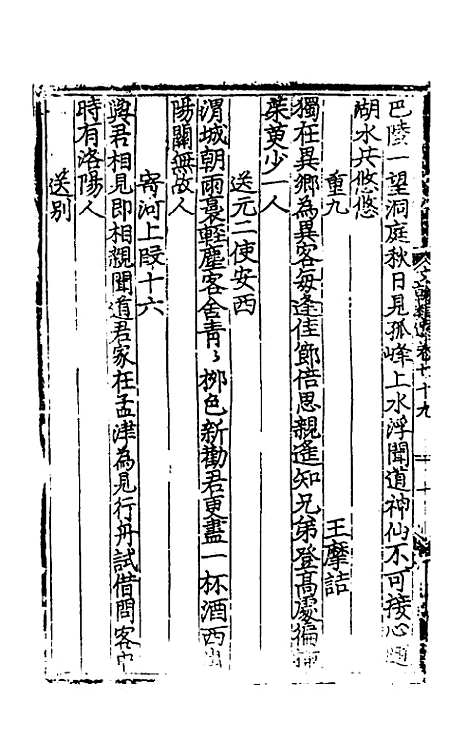 巴陵一望洞庭秋日見孤峰上水浮聞道神仙不可接心隨
湖水共悠悠
重九 王摩詰
獨在異鄉為異客每逢佳節倍思親遥知兄弟登高處徧插
茱萸少一人
送元二使安西
渭城朝雨裛輕塵客舍青〻栁色新勸君更盡一杯酒西出
陽關無故人
寄河上段十六
與君相見即相親聞道君家在孟津為見行舟試借問客中
時有洛陽人
送别